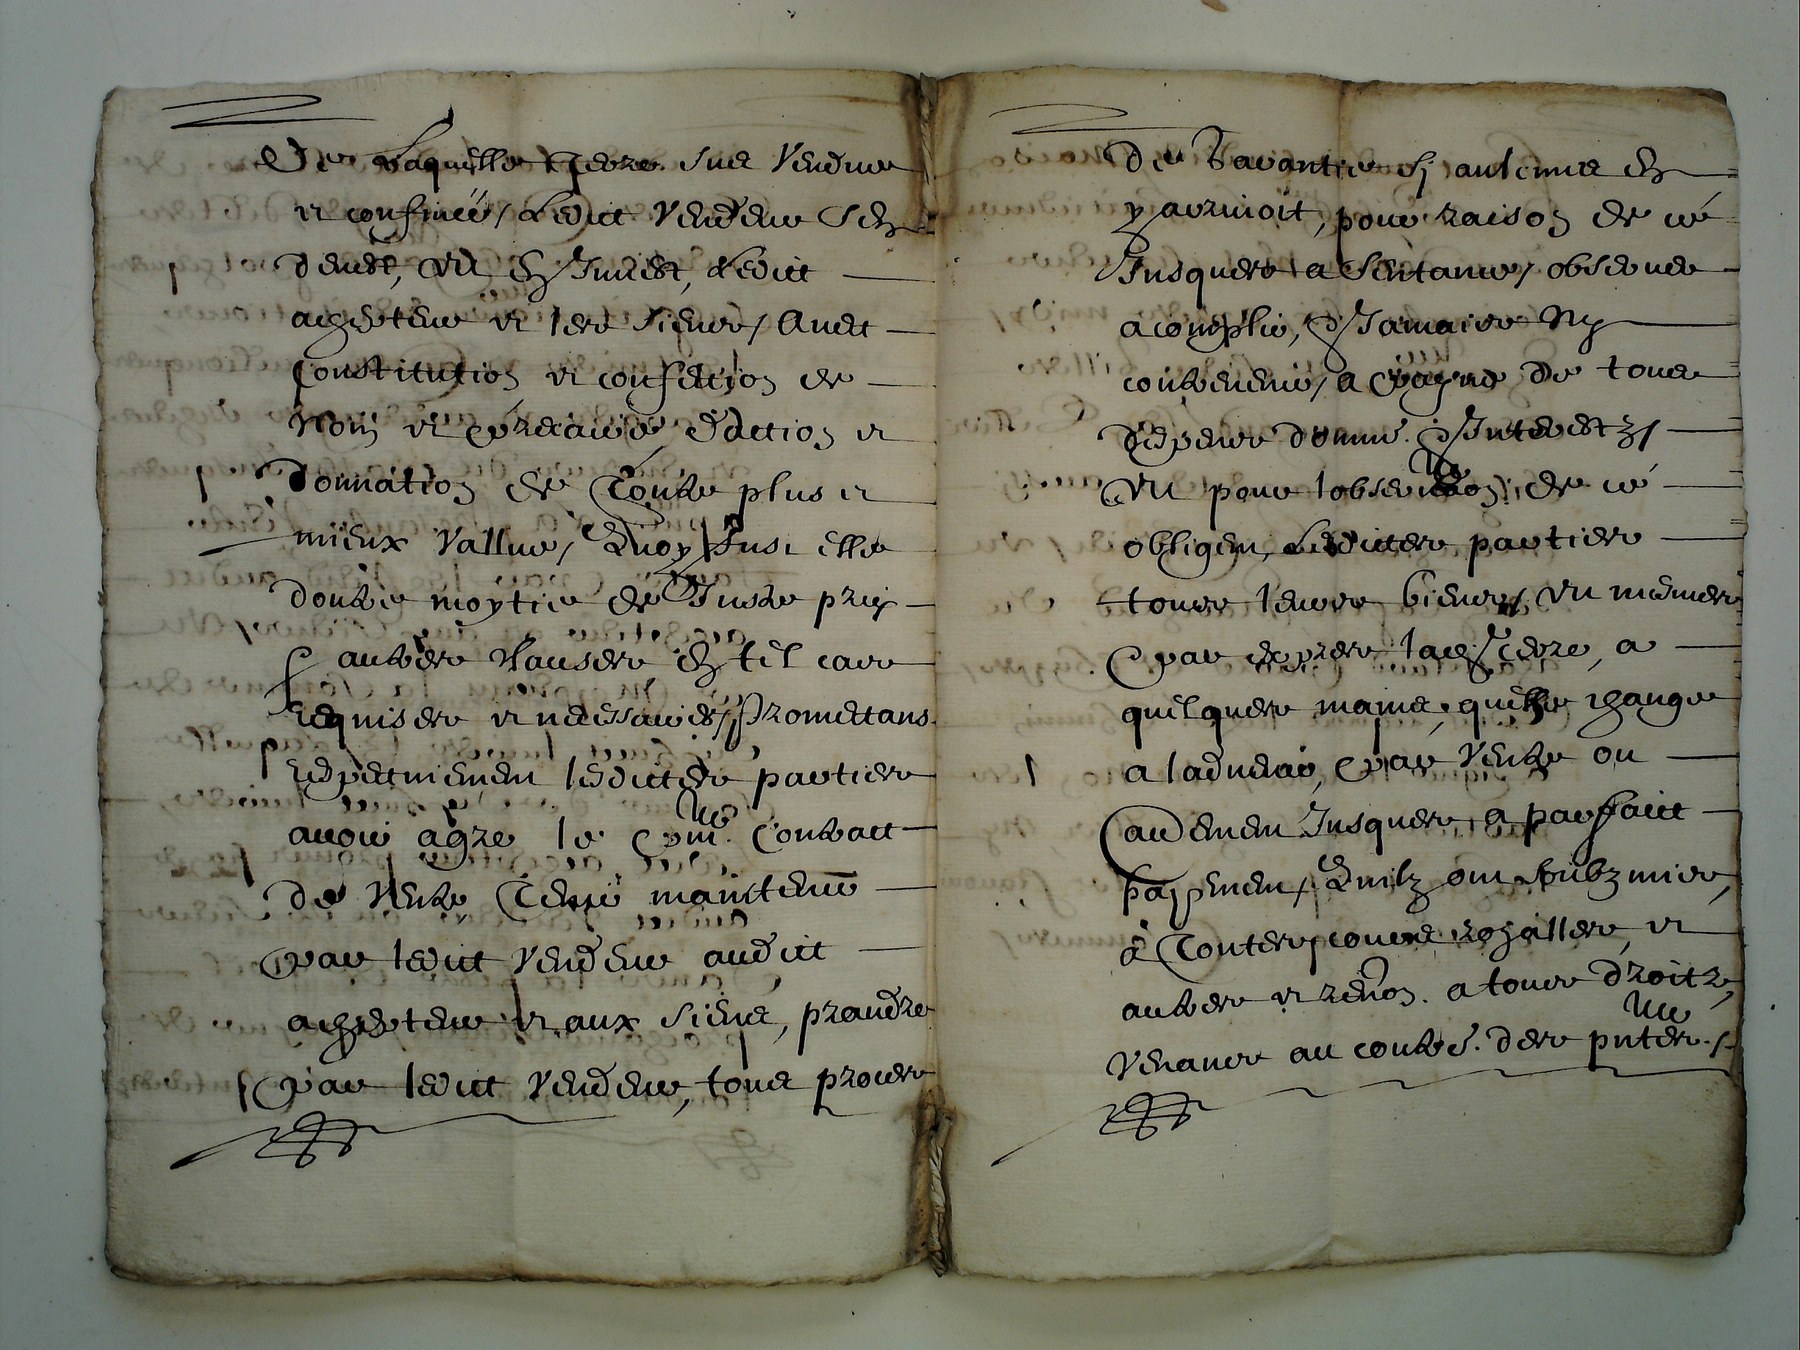 De laquelle terre sus vendue
et confinée, ledict vendeur s'en
devest, et en invest, ledict
achepteur et les siens, avec
constitution et confession de
nom et précaire, d'action et
donnation de toute plus et
mieux vallue, quoy fust elle
oultre moytie de juste prix
& aultres clauses en tel cas
requises et nécessaires, Promectans
respectivemen lesdictes parties
avoir agre le pnt contract
de vente tenir maintenir
par ledict vendeur audict
achepteur et aux siens, prandre
par ledict vendeur, tous proces
de garantie si aulcuns en
y advenoit, pour raison de ce
jusques a sentance, observer
acomplir, & jamais ny
contrevenir, a peyne de tous
despens domm. & interestz,
Et pour l'observaon de ce
obligen, lesdictes parties
tous leurs biens, et mesmes
par expres lad terre, a
quelques mains, quelle change
a ladvenir, par vente ou
aultremen jusques a parfaict
payemen, Quilz ont soubzmis,
à toutes, cours royalles, et
aultres et renon. a tous droitz,
venans au contre. des pntes.